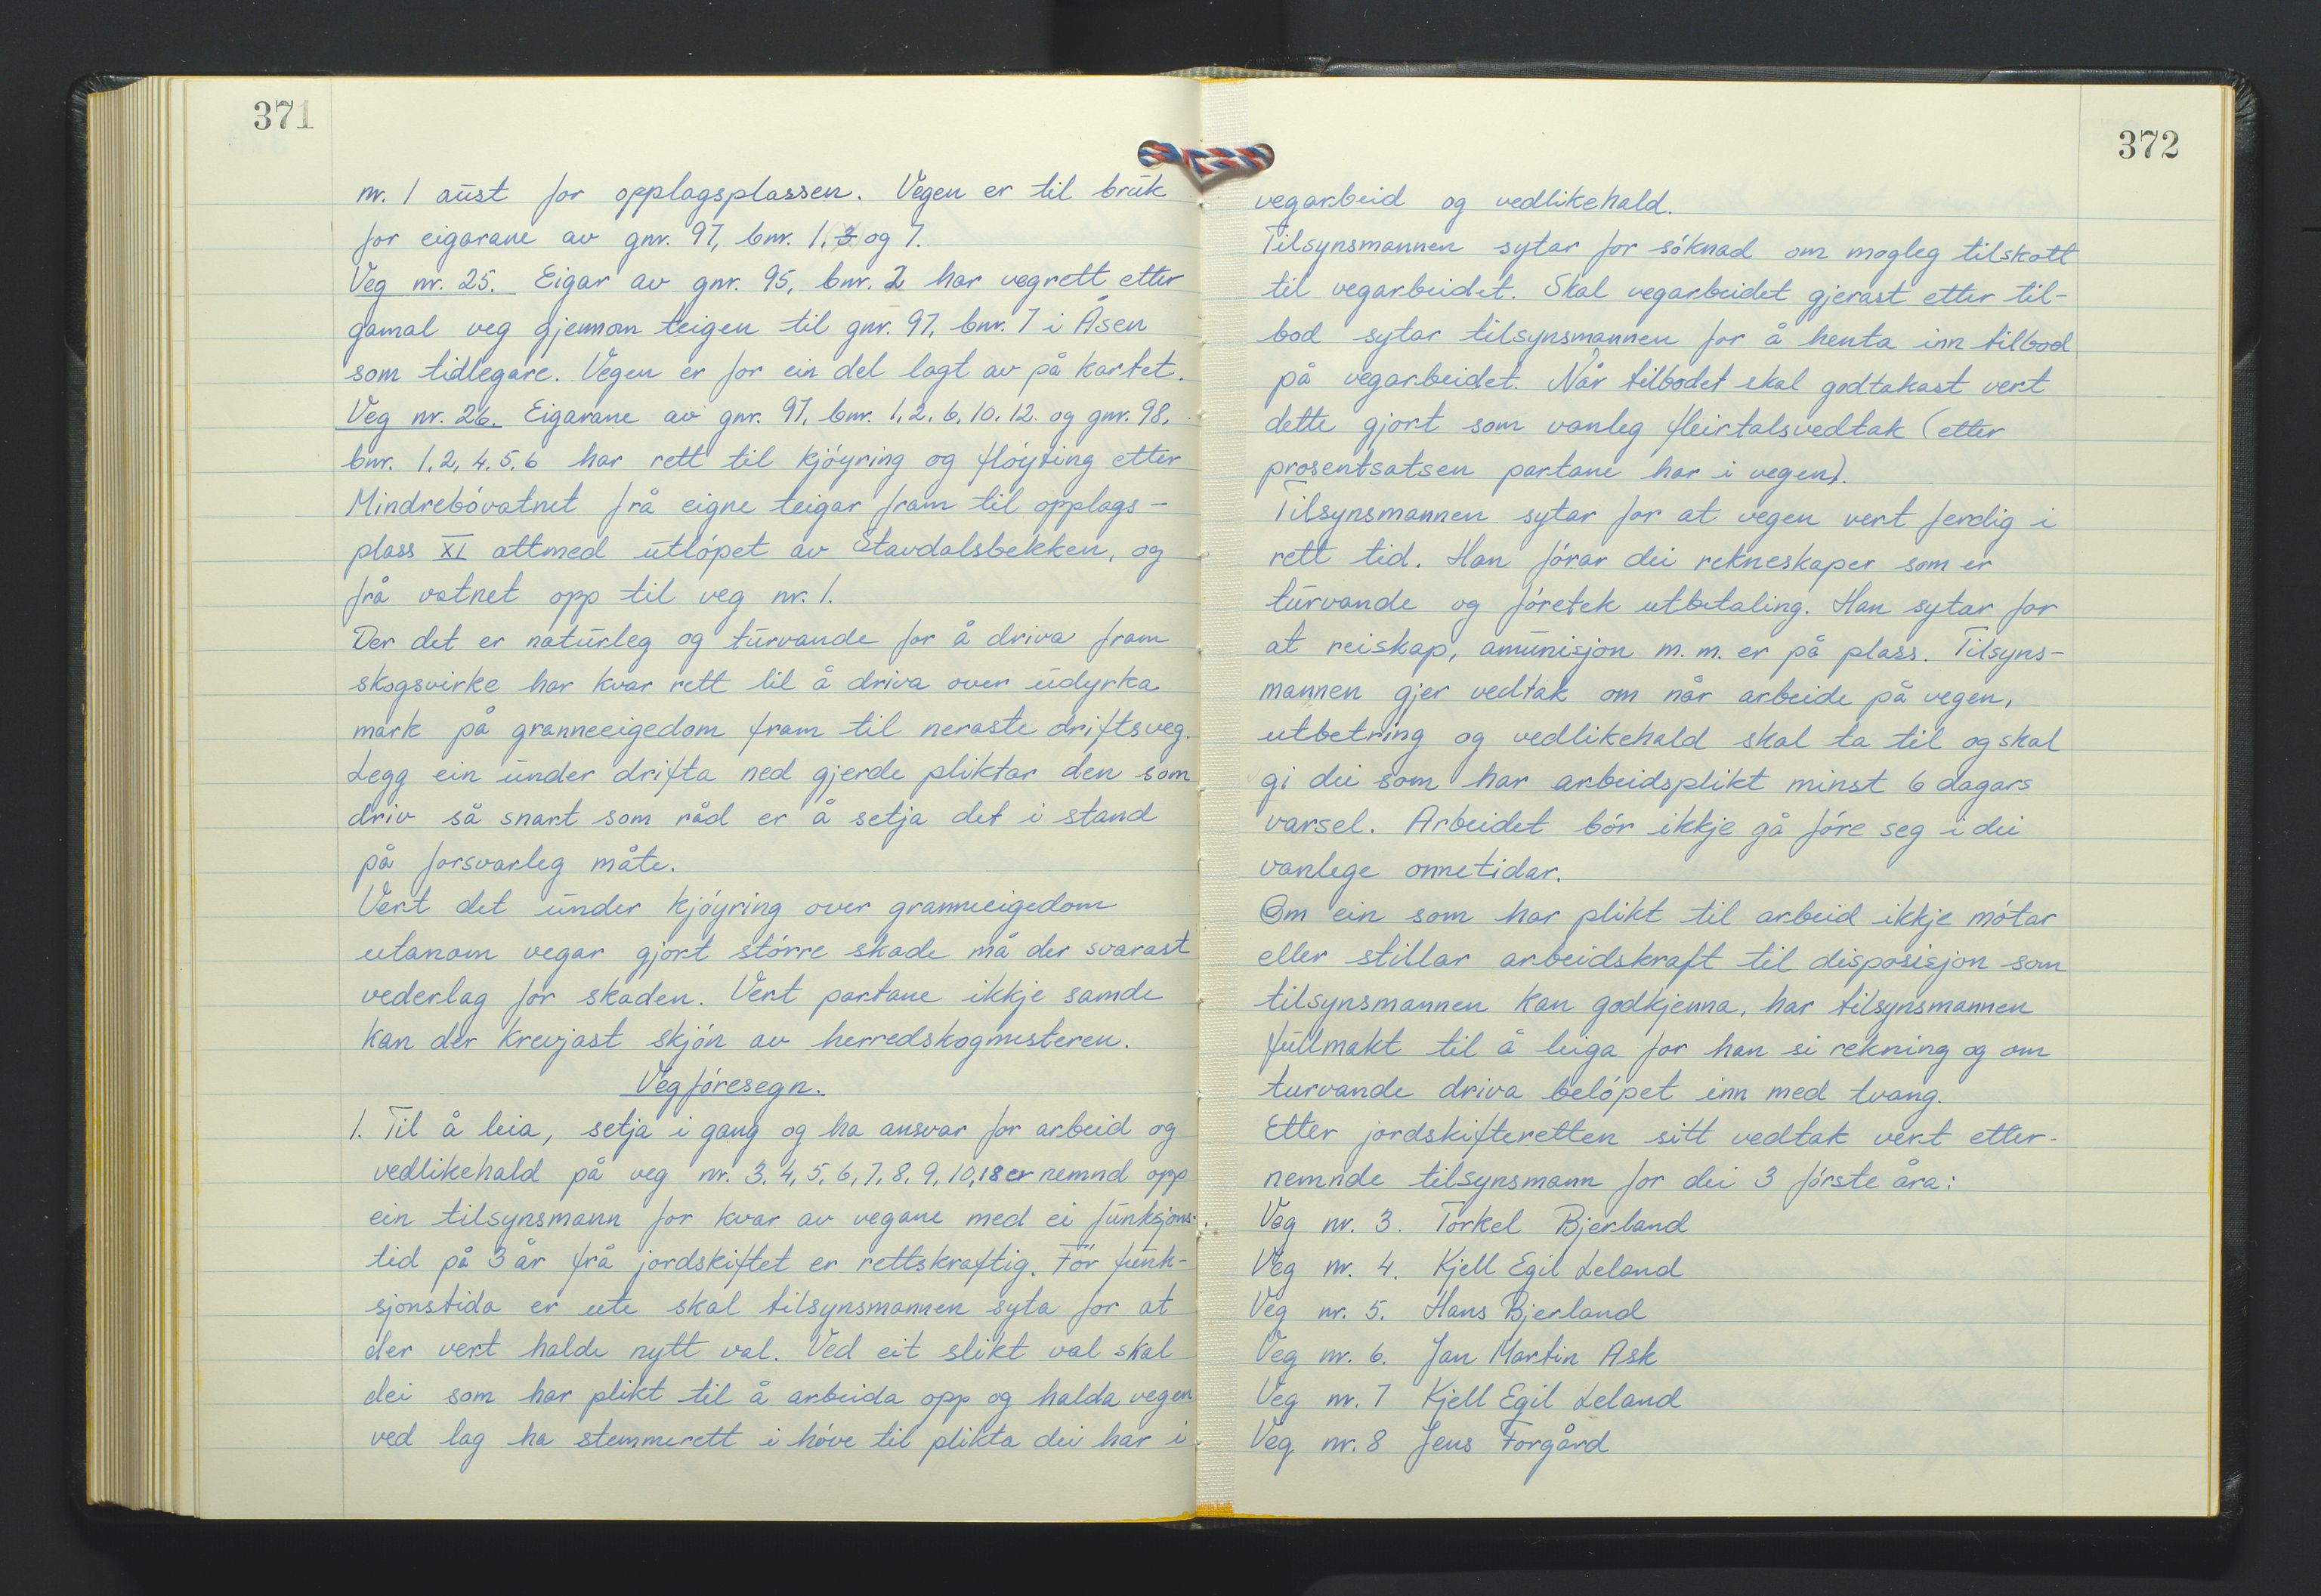 371
nr. 1 aust for opplagsplassen. Vegen er til bruk
for eigarane av gnr. 97, bnr. 1, 3 og 7.
Veg nr. 25. Eigar av gnr. 95, bnr. 2 har vegrett etter
gamal veg gjennom teigen til gnr. 97, bnr. 7 i Åsen
som tidlegare. Vegen er for ein del lagt av på kartet.
Veg nr. 26. Eigarane av gnr. 97, bnr. 1, 2, 6, 10, 12 og gnr. 98,
bnr. 1, 2, 4, 5, 6 har rett til kjóyring og flóyting etter
Mindrebóvatnet frå eigne teigar fram til opplags-
plass XI attmed utlópet av Stavdalsbekken, og
frå vatnet opp til veg nr. 1.
Der det er naturleg og turvande for å driva fram
skogsvirke har kvar rett til å driva over udyrka
mark på granneeigedom fram til neraste driftsveg.
Legg ein under drifta ned gjerde pliktar den som
driv så snart som råd er å setja det i stand
på forsvarleg måte.
Vert det under kjóyring over granneeigedom
utanom vegar gjort stórre skade må der svarast
vederlag for skaden. Vert partane ikkje samde
kan der krevjast skjón av herredskogmesteren.
Vegfóresegn.
1. Til å leia, setja i gang og ha ansvar for arbeid og
vedlikehald på veg nr. 3, 4, 5, 6, 7, 8, 9, 10, 18 er nemnd opp
ein tilsynsmann for kvar av vegane med ei funksjons-
tid på 3 år frå jordskiftet er rettskraftig. Fór funk-
sjonstida er ute skal tilsynsmannen syta for at
der vert halde nytt val. Ved eit slikt val skal
dei som har plikt til å arbeida opp og halda vegen
ved lag ha stemmerett i hóve til plikta dei har i
372
vegarbeid og vedlikehald.
Tilsynsmannen sytar for sóknad om mogleg tilskott
til vegarbeidet. Skal vegarbeidet gjerast etter til-
bod sytar tilsynsmannen for å henta inn tilbod
på vegarbeidet. Når tilbodet skal godtakast vert
dette gjort som vanleg fleirtalsvedtak (etter
prosentsatsen partane har i vegen).
Tilsynsmannen sytar for at vegen vert ferdig i
rett tid. Han fórar dei rekneskaper som er
turvande og fóretek utbetaling. Han sytar for
at reiskap, amunisjon m.m. er på plass. Tilsyns-
mannen gjer vedtak om når arbeide på vegen,
utbetring og vedlikehald skal ta til og skal
gi dei som har arbeidsplikt minst 6 dagars
varsel. Arbeidet bór ikkje gå fóre seg i dei
vanlege onnetidar.
Om ein som har plikt til arbeid ikkje mótar
eller stillar arbeidskraft til disposisjon som
tilsynsmannen kan godkjenna, har tilsynsmannen
fullmakt til å leiga for han si rekning og om
turvande driva belópet inn med tvang.
Etter jordskifteretten sitt vedtak vert etter-
nemnde tilsynsmann for dei 3 fórste åra:
Veg nr. 3. Torkel Bjerland
Veg nr. 4. Kjell Egil Leland
Veg nr. 5. Hans Bjerland
Veg nr. 6. Jan Martin Ask
Veg nr. 7 Kjell Egil Leland
Veg nr. 8 Jens Forgård